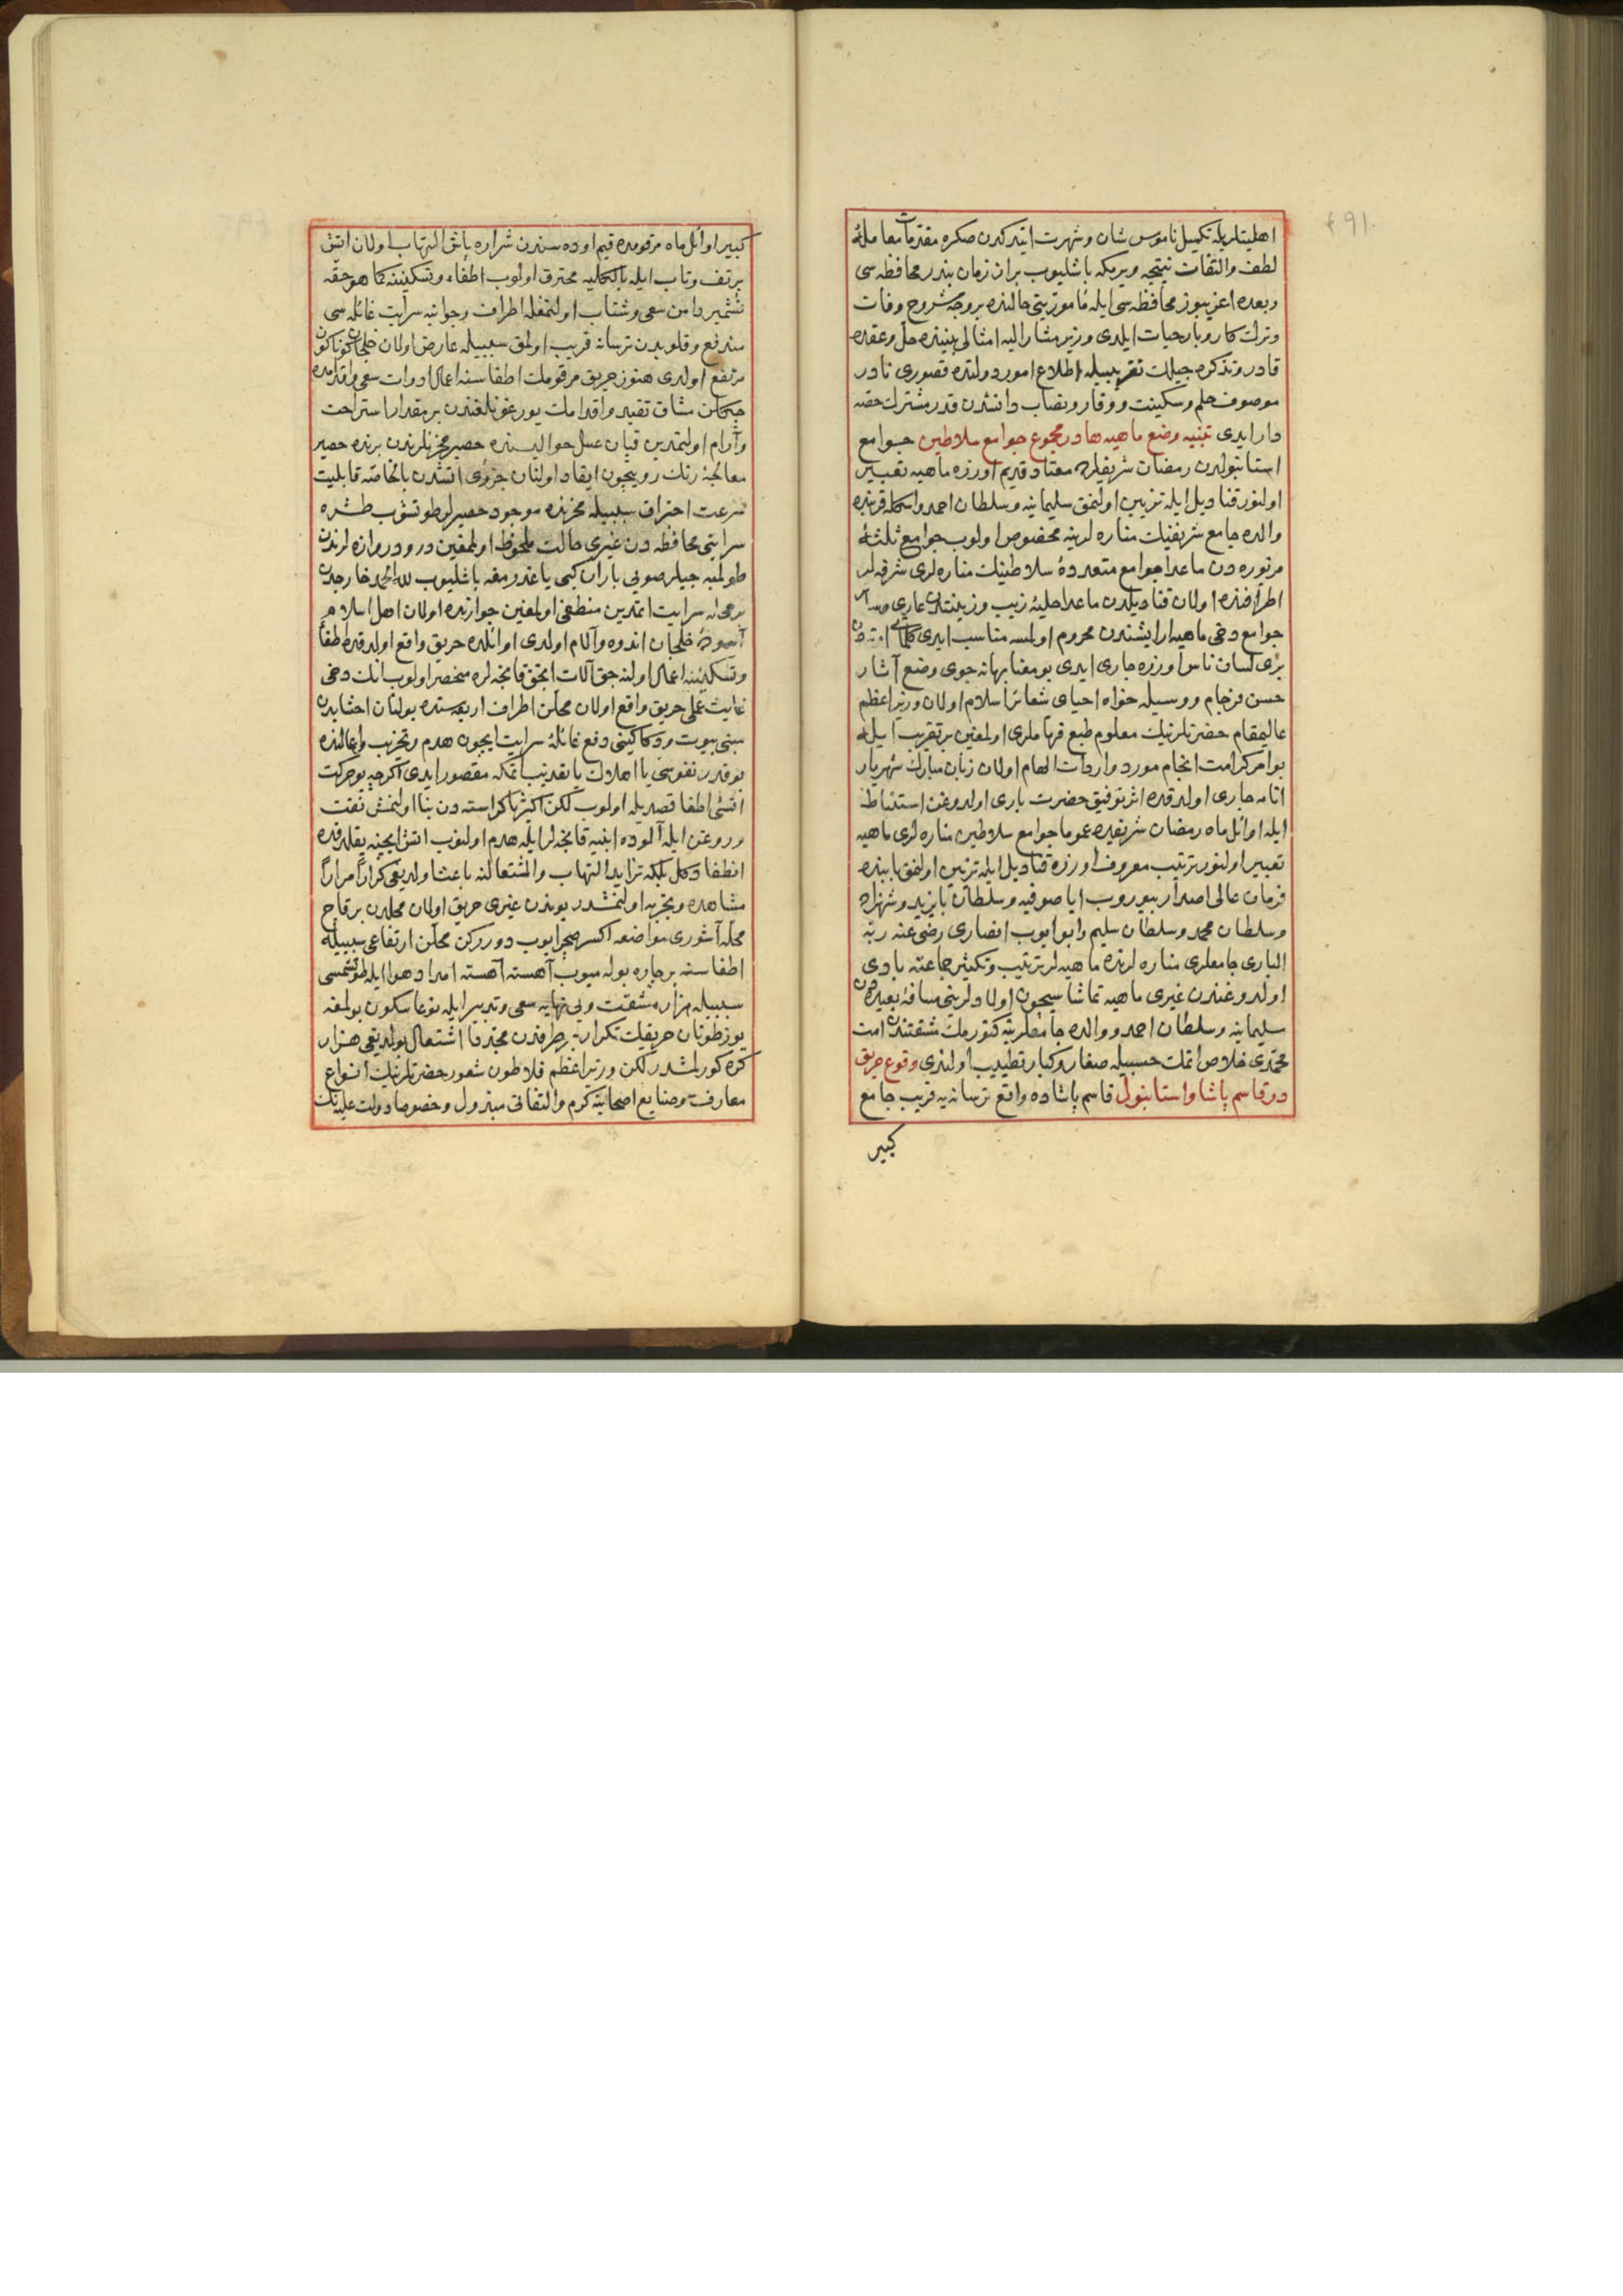 اهليتلريله تكميل ناموس شان و شهرت ايتدكدن صكره مقدمات معاملهٔ
لطف والتفات نتيجه ويرمكه باشليوب بر ان زمان بندر محافظه سى
و بعده اغريبوز محافظه سى ايله مأموريتى حالنده بر وجه مشروح وفات
و ترك كار و بار حيات ايلدى وزير مشار اليه امثالى بيننده حل و عقده
قادر و تذكره جيلك تقريبيله اطلاع امور دولتده قصورى نادر
موصوف حلم و سكينت و وقار و نصاب دانشدن قدر مشترك حصه
دار ايدى تنبيه وضع ماهيه ها در مجموع جوامع سلاطين جوامع
استانبولدن رمضان شريفلرده معتاد قديم اوزره ماهيه تعبير
اولنور قناديل ايله تزيين اولنمق سليمانيه و سلطان احمد و اسكله قربنده
والده جامع شريفنك مناره لرينه مخصوص اولوب جوامع ثلثهٔ
مزبوره دن ماعدا جوامع متعددهٔ سلاطينك مناره لرى شرفه لر
اطرافنده اولان قناديلدن ماعدا حليهٔ زيب و زينتدن عارى و سائر
جوامع دخى ماهيه ارايشندن محروم اولمسه مناسب ايدى كلماتى
برى لسان ناس اوزره جارى ايدى بو معنا بهانه جوى وضع آثار
حسن فرجام و وسيله خواه احياى شعائر اسلام اولان وزير اعظم
عاليمقام حضرتلرينك معلوم طبع فرهاملرى اولمغين بر تقريب ايله
بو امر كرامت انجام مورد واردات الهام اولان زبان مبارك شهريار
انامه جارى اولدقده اثر توفيق حضرت بارى اولدوغن استنباط
ايله اوائل ماه رمضان شريفده عموما جوامع سلاطين مناره لرى ماهيه
تعبير اولنور ترتيب معروف اوزره قناديل ايله تزيين اولنمق بابنده
فرمان عالى اصدار بيوروب اياصوفيه و سلطان بايزيد و شهزاده
و سلطان محمد و سلطان سليم و ابو ايوب انصارى رضى عنه ربه
البارى جامعلرى مناره لرنده ماهيه لر ترتيب و تكثير جماعته بادى
اولدوغندن غيرى ماهيه تماشاسيچون اولادلرينى مسافهٔ بعيده دن
سليمانيه و سلطان احمد و والده جامعلرينه كتورمك مشقتندن امت
محمدى خلاص ايتمك حسبيله صغار و كبار تطييب اولندى وقوع حريق
در قاسم پاشا و استانبول قاسم پاشاده واقع ترسانه يه قريب جامع
كبير
كبير اوائل ماه مرقومده قيم اوده سندن شراره پاش التهاب اولان اتش
پر تف و تاب ايله بالكليه محترق اولوب اطفاء و تسكيننه كما هو حقه
تشمير دامن سعى و شتاب اولنمغله اطراف و جوانبه سرايت غائله سى
مندفع و قلوبدن ترسانه قريب اولمق سببيله عارض اولان خلجان كوناكون
مرتفع اولدى هنوز حريق مرقومك اطفاسنه اعمال ادوات سعى و اقدامده
چكلن مشاق تقيد و اقدامك يورغونلغندن بر مقدار استراحت
و آرام اولنمدين قپان عسل حواليسنده حصير مخزنلرندن برنده حصير
معالجهٔ رنك رويچون ايقاد اولنان جزؤى اتشدن بالخاصه قابليت
سرعت احتراق سببيله مخزنده موجود حصيرلر طوتشوب طشره
سرايتى محافظه دن غيرى حالت ملحوظ اولمغين در و دروازه لرندن
طولمبه جيلر صويى باران كبى ياغدرمغه باشليوب لله الحمد خارجدن
بر محله سرايت ايتمدين منطفى اولمغين جوارنده اولان اهل اسلام
آسودهٔ خلجان اندوه و آلام اولدى اوائلده حريق واقع اولدقده اطفا
و تسكيننه اعمال اولنه جق آلات انجق قانجه لره منحصر اولوب انك دخى
غايت عملى حريق واقع اولان محلن اطراف اربعه سنده بولنان اخشابدن
مبنى بيوت و دكاكينى دفع غائلهٔ سرايت ايچون هدم و تخريب و اعمالنده
بو قدر نفوسى يا اهلاك يا تعذيب ايتمكه مقصور ايدى اكرچه بو حركت
اتشى اطفا قصديله اولوب لكن اكثريا كراسته دن بنا اولنمش نفت
و روغن ايله آلوده ابنيه قانجه لر ايله هدم اولنوب اتش ايچنه يقلدقده
انطفا دكل بلكه تزايد التهاب و اشتعالنه باعث اولديغى كراراً مراراً
مشاهده و تجربه اولنمشدر بوندن غيرى حريق اولان محلدن بر قاچ
محله آشورى مواضعه اكسر صچرايوب دوررى كن محلن ارتفاعى سببيله
اطفاسنه بر چاره بوله ميوب آهسته آهسته امداد هوا ايله طوتشمسى
سببيله هزار مشقت و بى نهايه سعى و تدبير ايله نوعا سكون بولمغه
يوز طوتان حريقك تكرار بر طرفدن مجددا اشتعال بولديغى هزار
كره كورلمشدر لكن وزير اعظم فلاطون شعور حضرتلرينك انواع
معارف و صنايع اصحابنه كرم و التفاتى مبذول و خصوصا دولت عليه نك